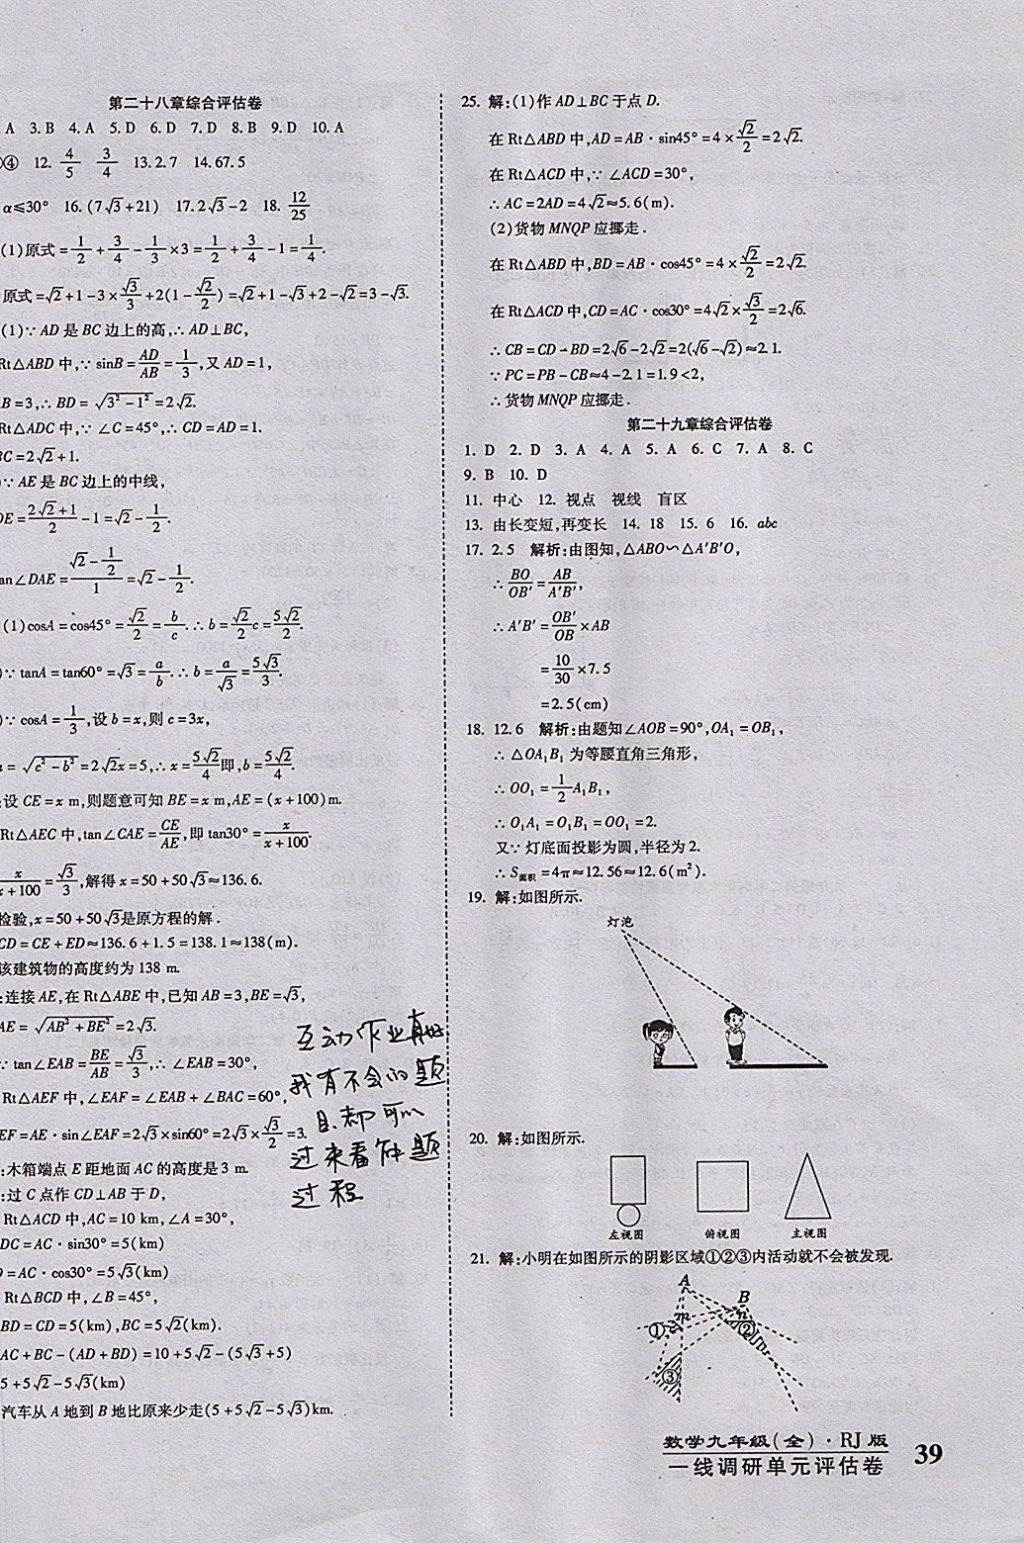 第二十八章综合评估卷
A 3. B 4. A 5. D 6. D 7. D 8. B 9. D 10. A
④ 12. 4/5 3/4 13. 2.7 14. 67.5
α≤30° 16. (7√3+21) 17. 2√3-2 18. 12/25
(1)原式=1/2+3/4-1/3×3=1/2+3/4-1=1/4.
原式=√2+1-3×√3/3+2(1-√2/2)=√2+1-√3+2-√2=3-√3.
(1)∵AD 是 BC 边上的高,∴AD⊥BC,
Rt△ABD 中,∵sinB=AD/AB=1/3,又 AD=1,
B=3,∴BD=√(3²-1²)=2√2.
Rt△ADC 中,∵∠C=45°,∴CD=AD=1.
BC=2√2+1.
)∵AE 是 BC 边上的中线,
DE=(2√2+1)/2-1=√2-1/2.
an∠DAE=(√2-1/2)/1=√2-1/2.
(1)cosA=cos45°=√2/2=b/c.∴b=√2/2c=5√2/2.
)∵tanA=tan60°=√3=a/b.∴b=a/√3=5√3/3.
)∵cosA=1/3,设 b=x,则 c=3x,
a=√(c²-b²)=2√2x=5,∴x=5√2/4即,b=5√2/4.
:设 CE=x m,则题意可知 BE=x m,AE=(x+100)m.
Rt△AEC 中,tan∠CAE=CE/AE,即 tan30°=x/(x+100).
x/(x+100)=√3/3,解得 x=50+50√3≈136.6.
检验,x=50+50√3是原方程的解.
CD=CE+ED≈136.6+1.5=138.1≈138(m).
该建筑物的高度约为 138 m.
:连接 AE,在 Rt△ABE 中,已知 AB=3,BE=√3,
AE=√(AB²+BE²)=2√3.
∵tan∠EAB=BE/AB=√3/3,∴∠EAB=30°,
Rt△AEF 中,∠EAF=∠EAB+∠BAC=60°,
EF=AE·sin∠EAF=2√3×sin60°=2√3×√3/2=3.
:木箱端点 E 距地面 AC 的高度是 3 m.
:过 C 点作 CD⊥AB 于 D,
Rt△ACD 中,AC=10 km,∠A=30°,
DC=AC·sin30°=5(km)
=AC·cos30°=5√3(km)
Rt△BCD 中,∠B=45°,
BD=CD=5(km),BC=5√2(km).
AC+BC-(AD+BD)=10+5√2-(5√3+5)
5+5√2-5√3(km)
汽车从 A 地到 B 地比原来少走(5+5√2-5√3)km.
互动作业真好
我有不会的题
且都可以
过来看解题
过程
25. 解:(1)作 AD⊥BC 于点 D.
在 Rt△ABD 中,AD=AB·sin45°=4×√2/2=2√2.
在 Rt△ACD 中,∵∠ACD=30°,
∴AC=2AD=4√2≈5.6(m).
(2)货物 MNQP 应挪走.
在 Rt△ABD 中,BD=AB·cos45°=4×√2/2=2√2.
在 Rt△ACD 中,CD=AC·cos30°=4√2×√3/2=2√6.
∴CB=CD-BD=2√6-2√2=2(√6-√2)≈2.1.
∵PC=PB-CB≈4-2.1=1.9<2,
∴货物 MNQP 应挪走.
第二十九章综合评估卷
1. D 2. D 3. A 4. A 5. A 6. C 7. A 8. C
9. B 10. D
11. 中心 12. 视点 视线 盲区
13. 由长变短,再变长 14. 18 15. 6 16. abc
17. 2.5 解析:由图知,△ABO∽△A'B'O,
∴BO/OB'=AB/A'B',
∴A'B'=OB'/OB×AB
=10/30×7.5
=2.5(cm)
18. 12.6 解析:由题知∠AOB=90°,OA₁=OB₁,
∴△OA₁B₁ 为等腰直角三角形,
∴OO₁=1/2A₁B₁,
∴O₁A₁=O₁B₁=OO₁=2.
又∵灯底面投影为圆,半径为 2.
∴S面积=4π≈12.56≈12.6(m²).
19. 解:如图所示.
灯泡
20. 解:如图所示.
左视图 俯视图 主视图
21. 解:小明在如图所示的阴影区域①②③内活动就不会被发现.
A
B
m
n
①
②
③
数学九年级(全)·RJ 版
一线调研单元评估卷
39